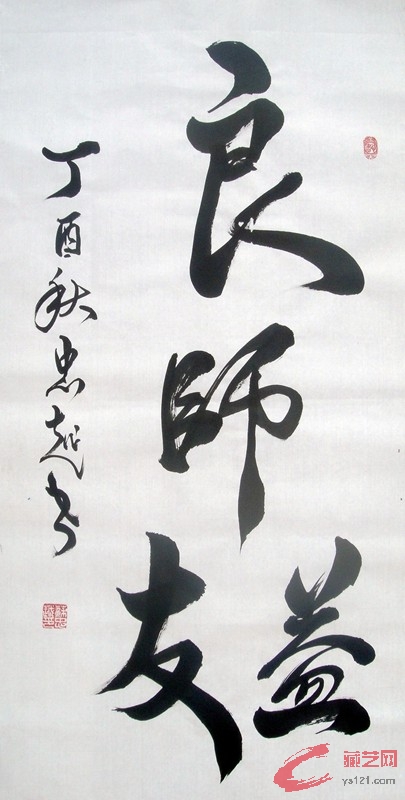 良師益友
丁酉秋忠越书
藏艺网
ys121.com